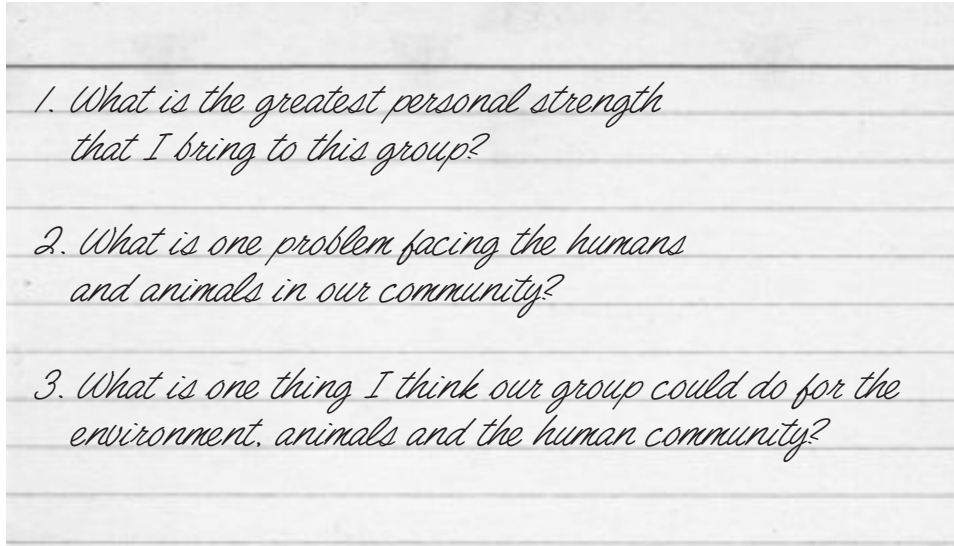 1. What is the greatest personal strength
that I bring to this group?
2. What is one problem facing the humans
and animals in our community?
3. What is one thing I think our group could do for the
environment, animals and the human community?